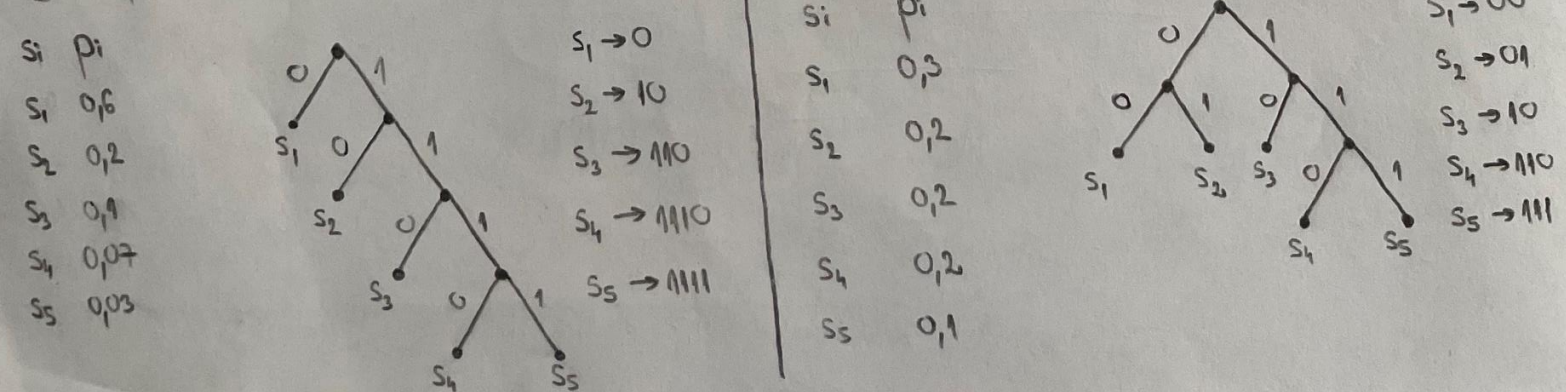 Si pi
S1 0,6
S2 0,2
S3 0,1
S4 0,07
S5 0,03
0 1
S1 0 1
S2 0 1
S3 0 1
S4 S5
S1 → 0
S2 → 10
S3 → 110
S4 → 1110
S5 → 1111
Si pi
S1 0,3
S2 0,2
S3 0,2
S4 0,2
S5 0,1
0 1
0 1 0 1
S1 S2 S3 0 1
S4 S5
S1 → 00
S2 → 01
S3 → 10
S4 → 110
S5 → 111